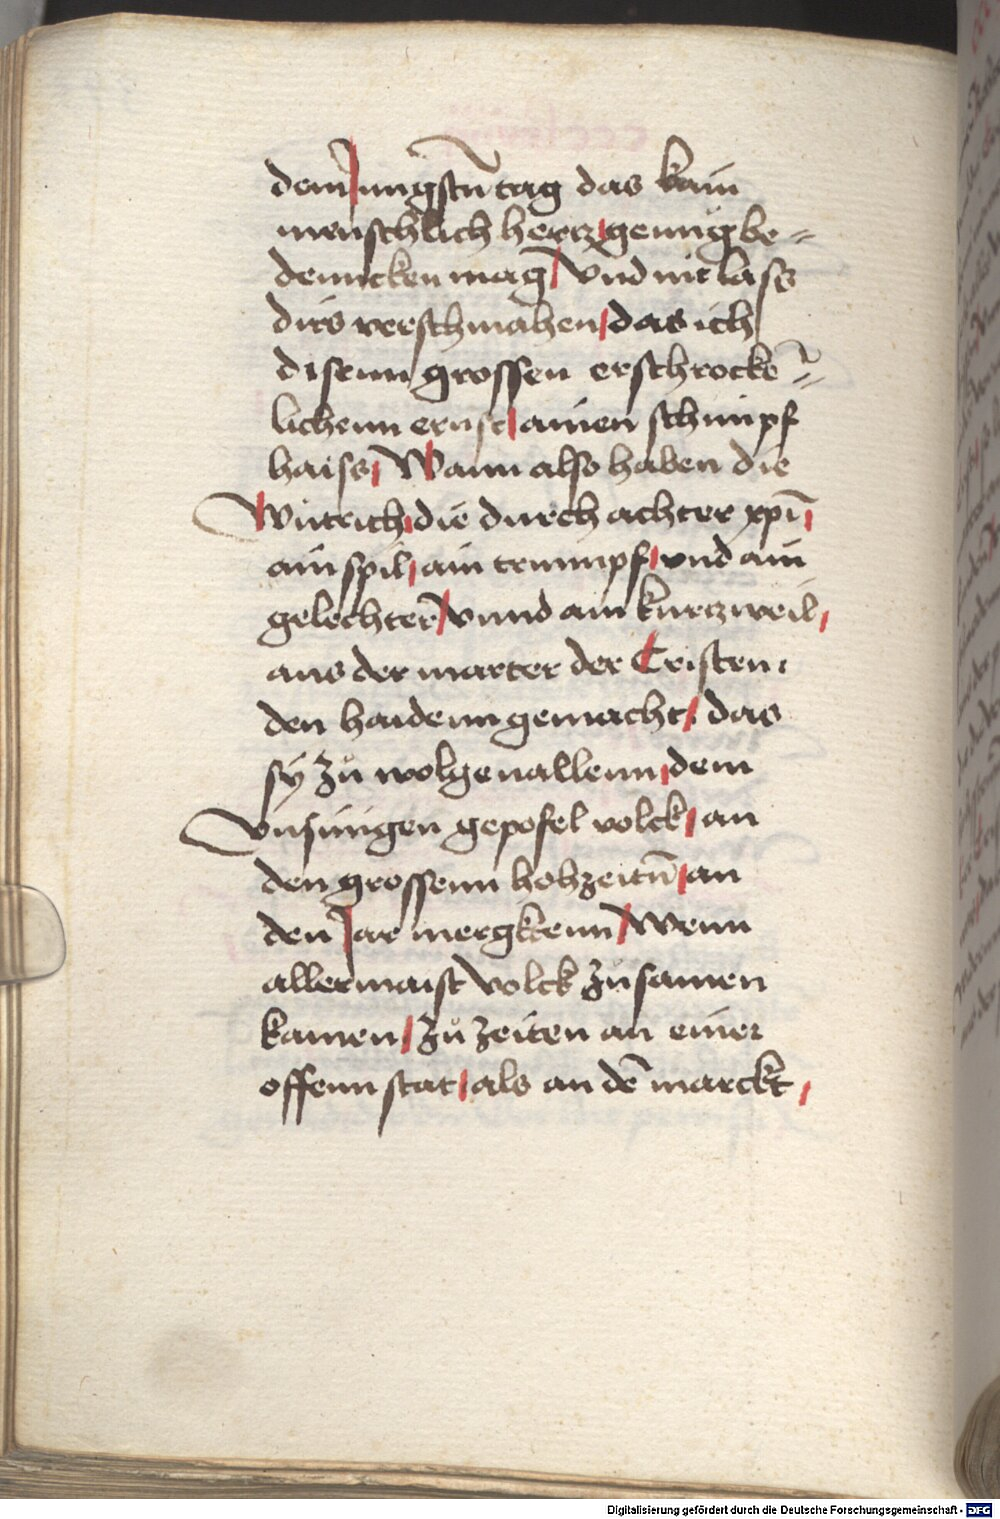 dem Jungstn̄ tag das kain
menschlich hertz genuͦg be=
denncken mag / Vnd nit lass
dirs verschmahen / das ich
disenn grossen erschrocke=
lichenn ernst / ainen schimpf
haiss / Wann also haben die
Wu̇trich / die durch achter xp̄i /
ain spil / ain trumpf / vnd ain
gelechter / Vnnd ain kurtzweil /
aus der marter der Cristen
den haidenn gemacht / das
sÿ zů wolgeuallenn / dem
Vnsinnigen gepofel volck / an
den grossenn hohzeitn̄ / an
den Jar mergktenn / Wenn
allermaist volck zůsamen
kamen / zů zeiten an einer
offenn stat / als an dē marckt /
Digitalisierung gefördert durch die Deutsche Forschungsgemeinschaft - DFG